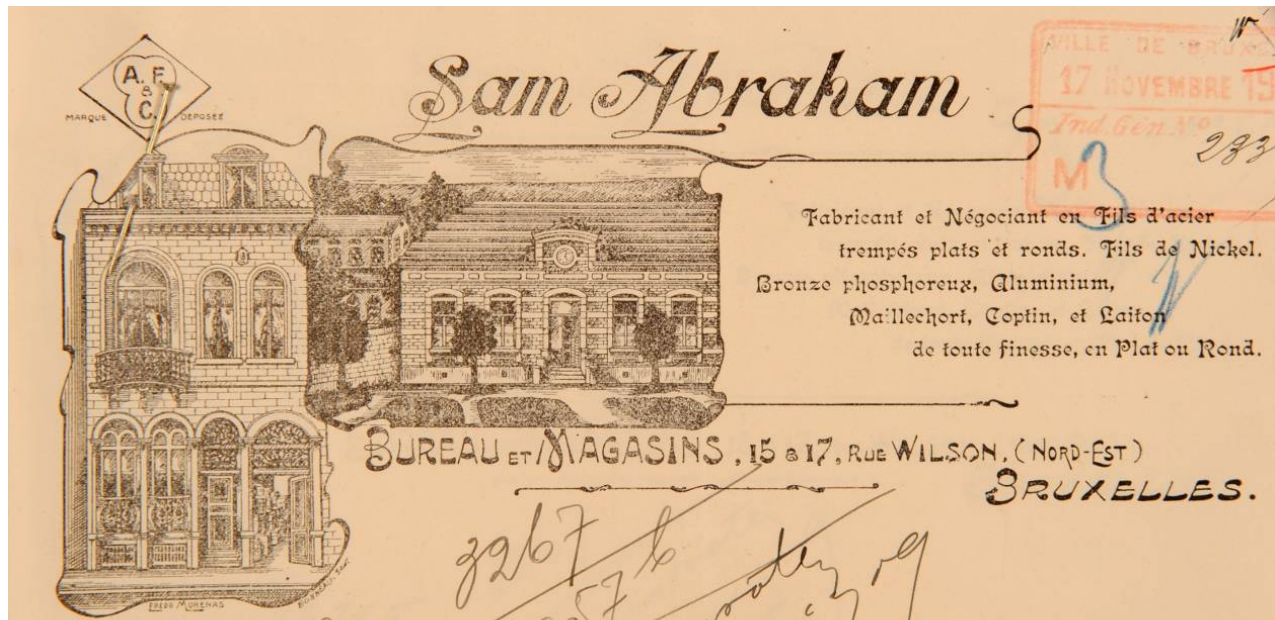 A. F.
&
C.
MARQUE DEPOSÉE
Sam Abraham
VILLE DE
17 NOVEMBRE 19
Ind. Gén. Nº
233
M
Fabricant et Négociant en Fils d'acier
trempés plats et ronds. Fils de Nickel.
Bronze phosphoreux, Aluminium,
Maillechort, Coptin, et Laiton
de toute finesse, en Plat ou Rond.
BUREAU ET MAGASINS, 15 & 17, RUE WILSON. (NORD-EST)
BRUXELLES.
3267
FREDO MORENAS